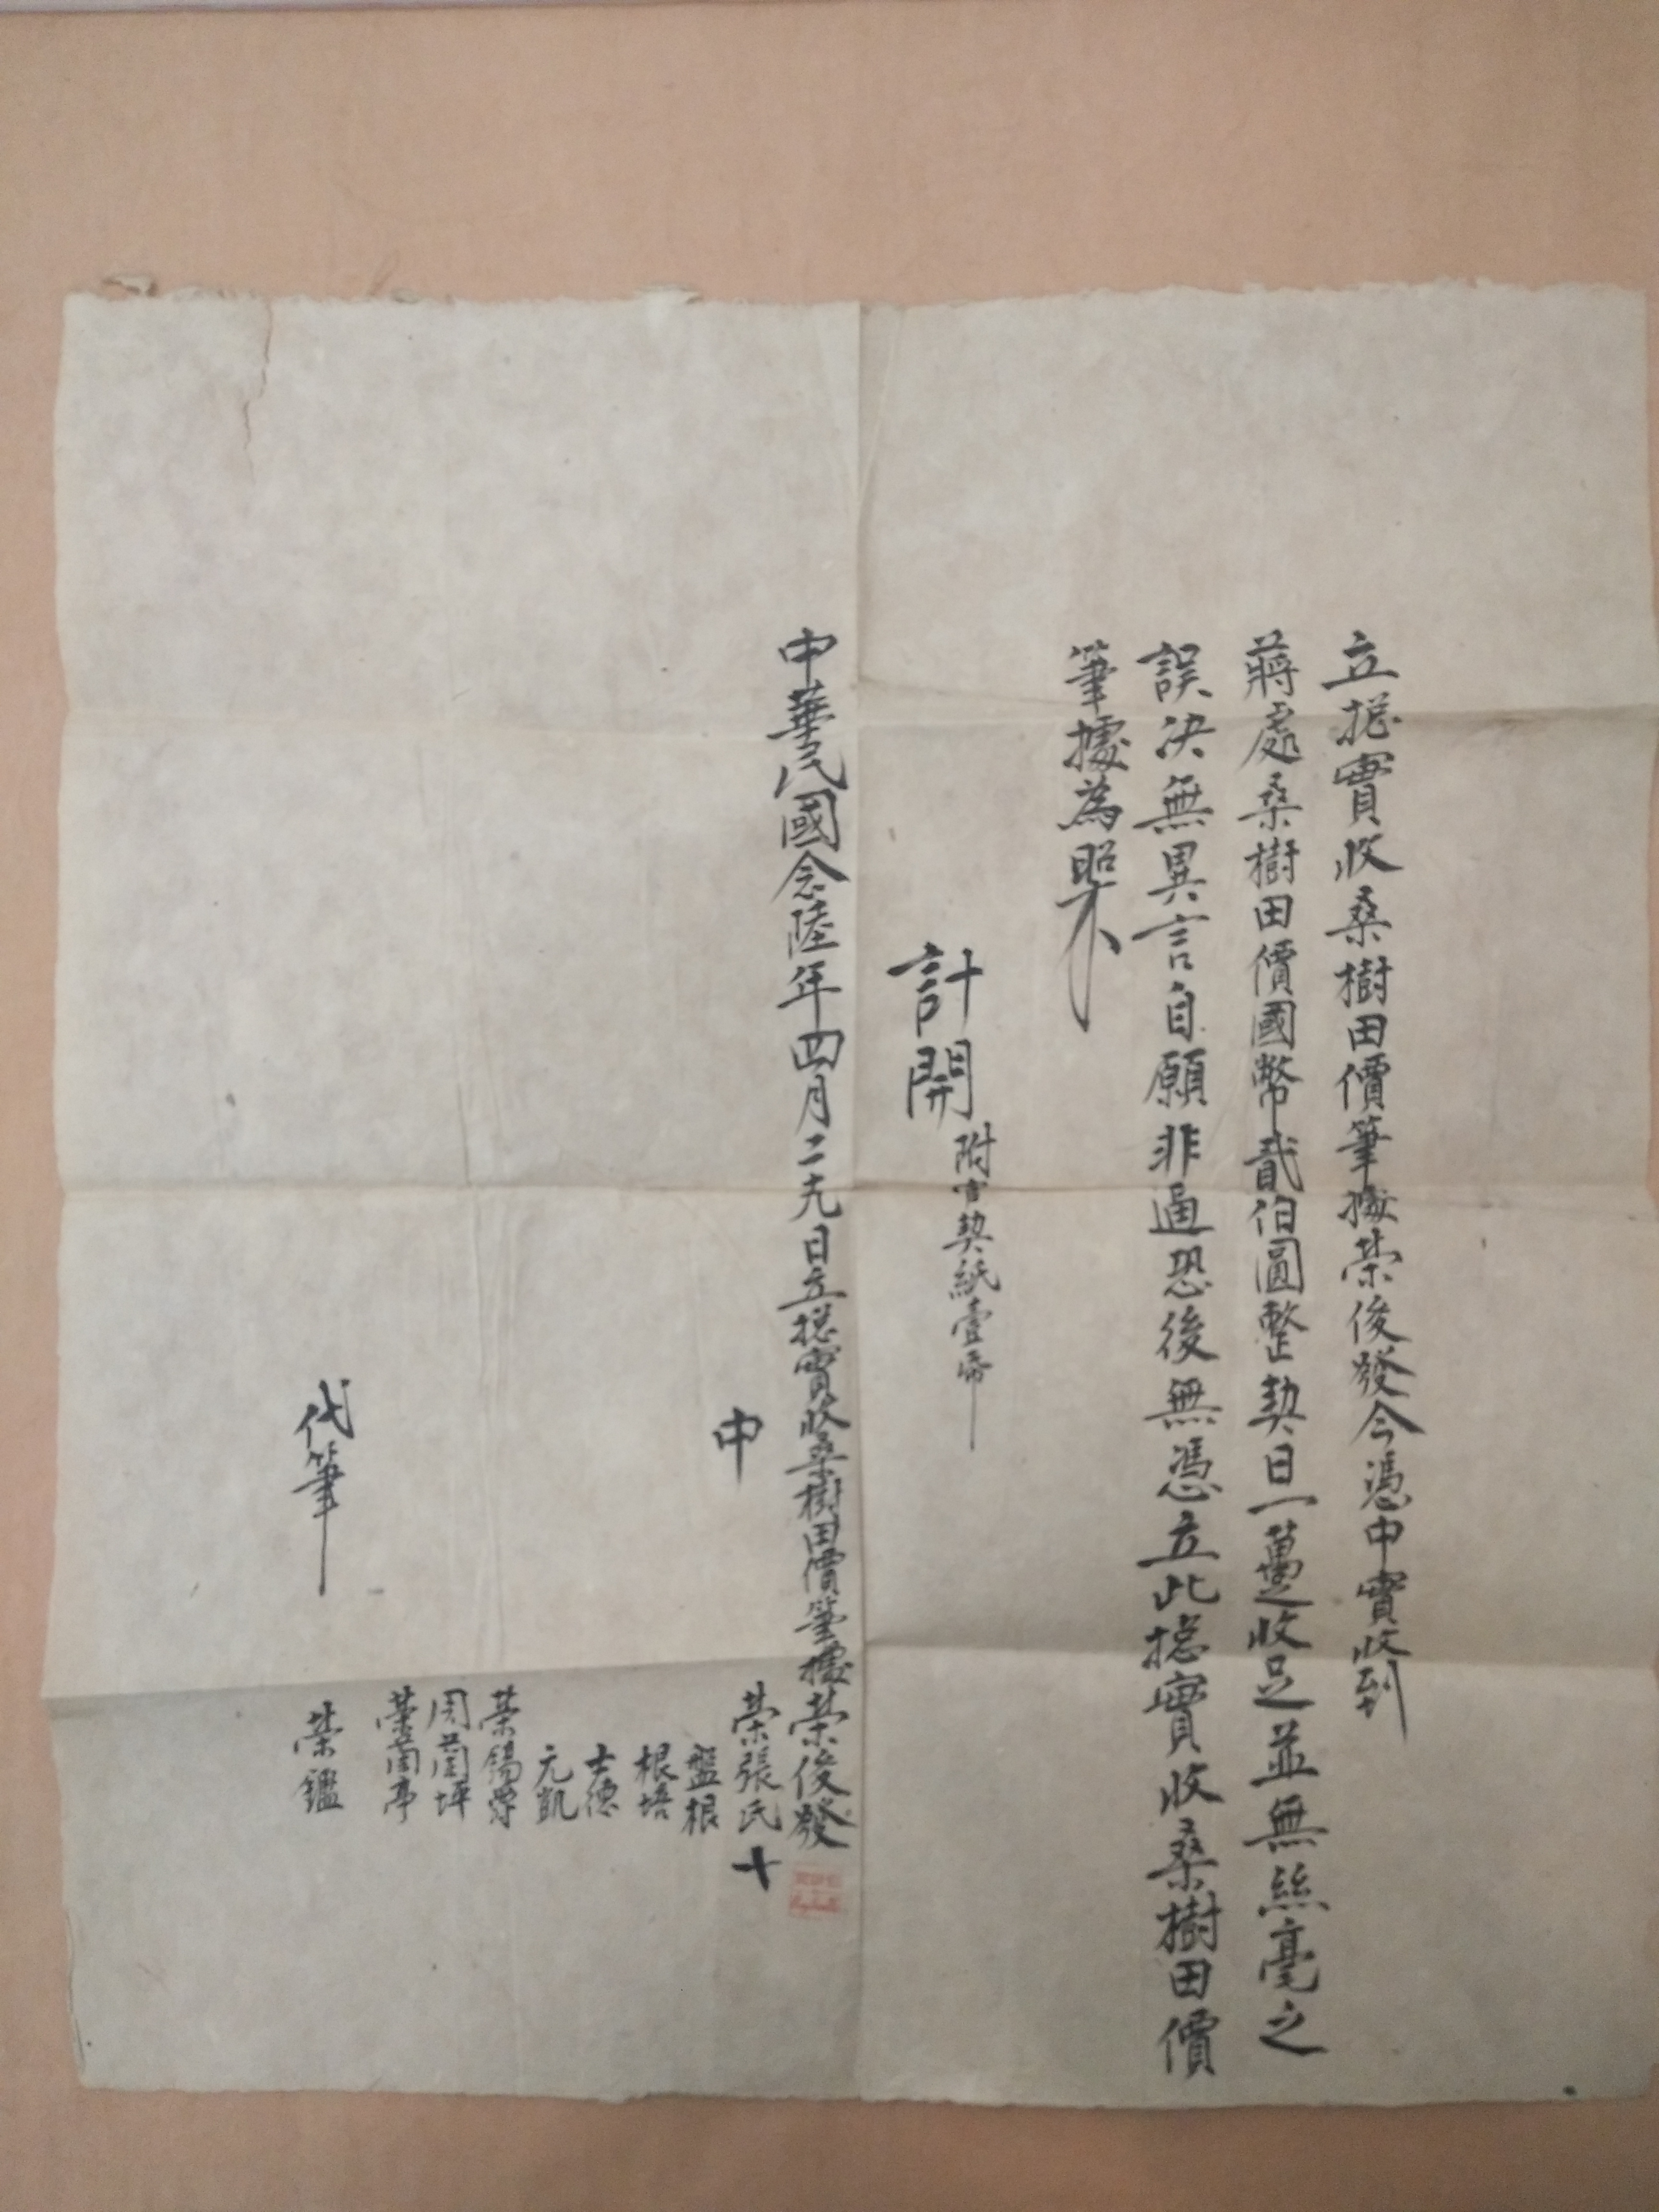 立摠實收桑樹田價筆據荣俊發今憑中實收到
蔣處桑樹田價國幣貳伯圓整契日一躉收足並無絲毫之
誤決無異言自願非逼恐後無憑立此摠實收桑樹田價
筆據為照
計開
附官契紙壹帋
中華民國念陸年四月二九日立摠實收桑樹田價筆據荣俊發
中
荣張氏 十
盤根
根培
士德
元凱
荣錫
周蘭坪
荣蘭亭
代筆 荣鑑